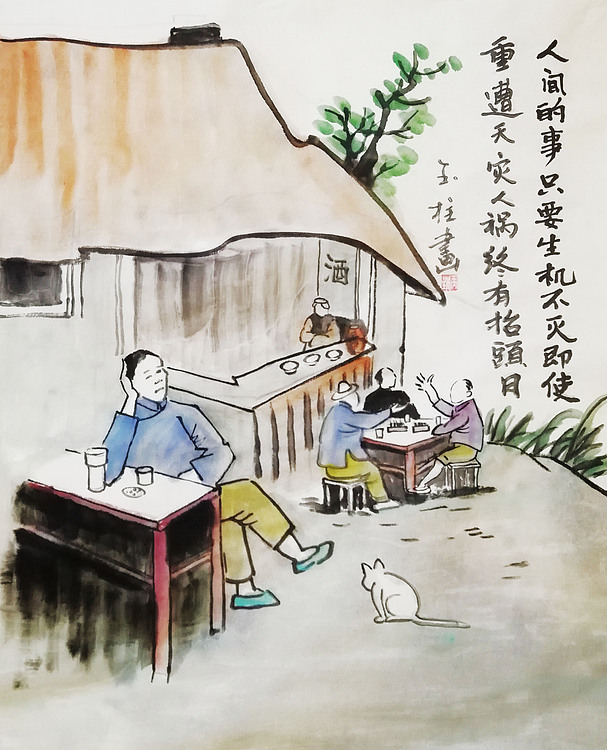 人间的事只要生机不灭即使
重遭天灾人祸终有抬頭日
柱畫
酒